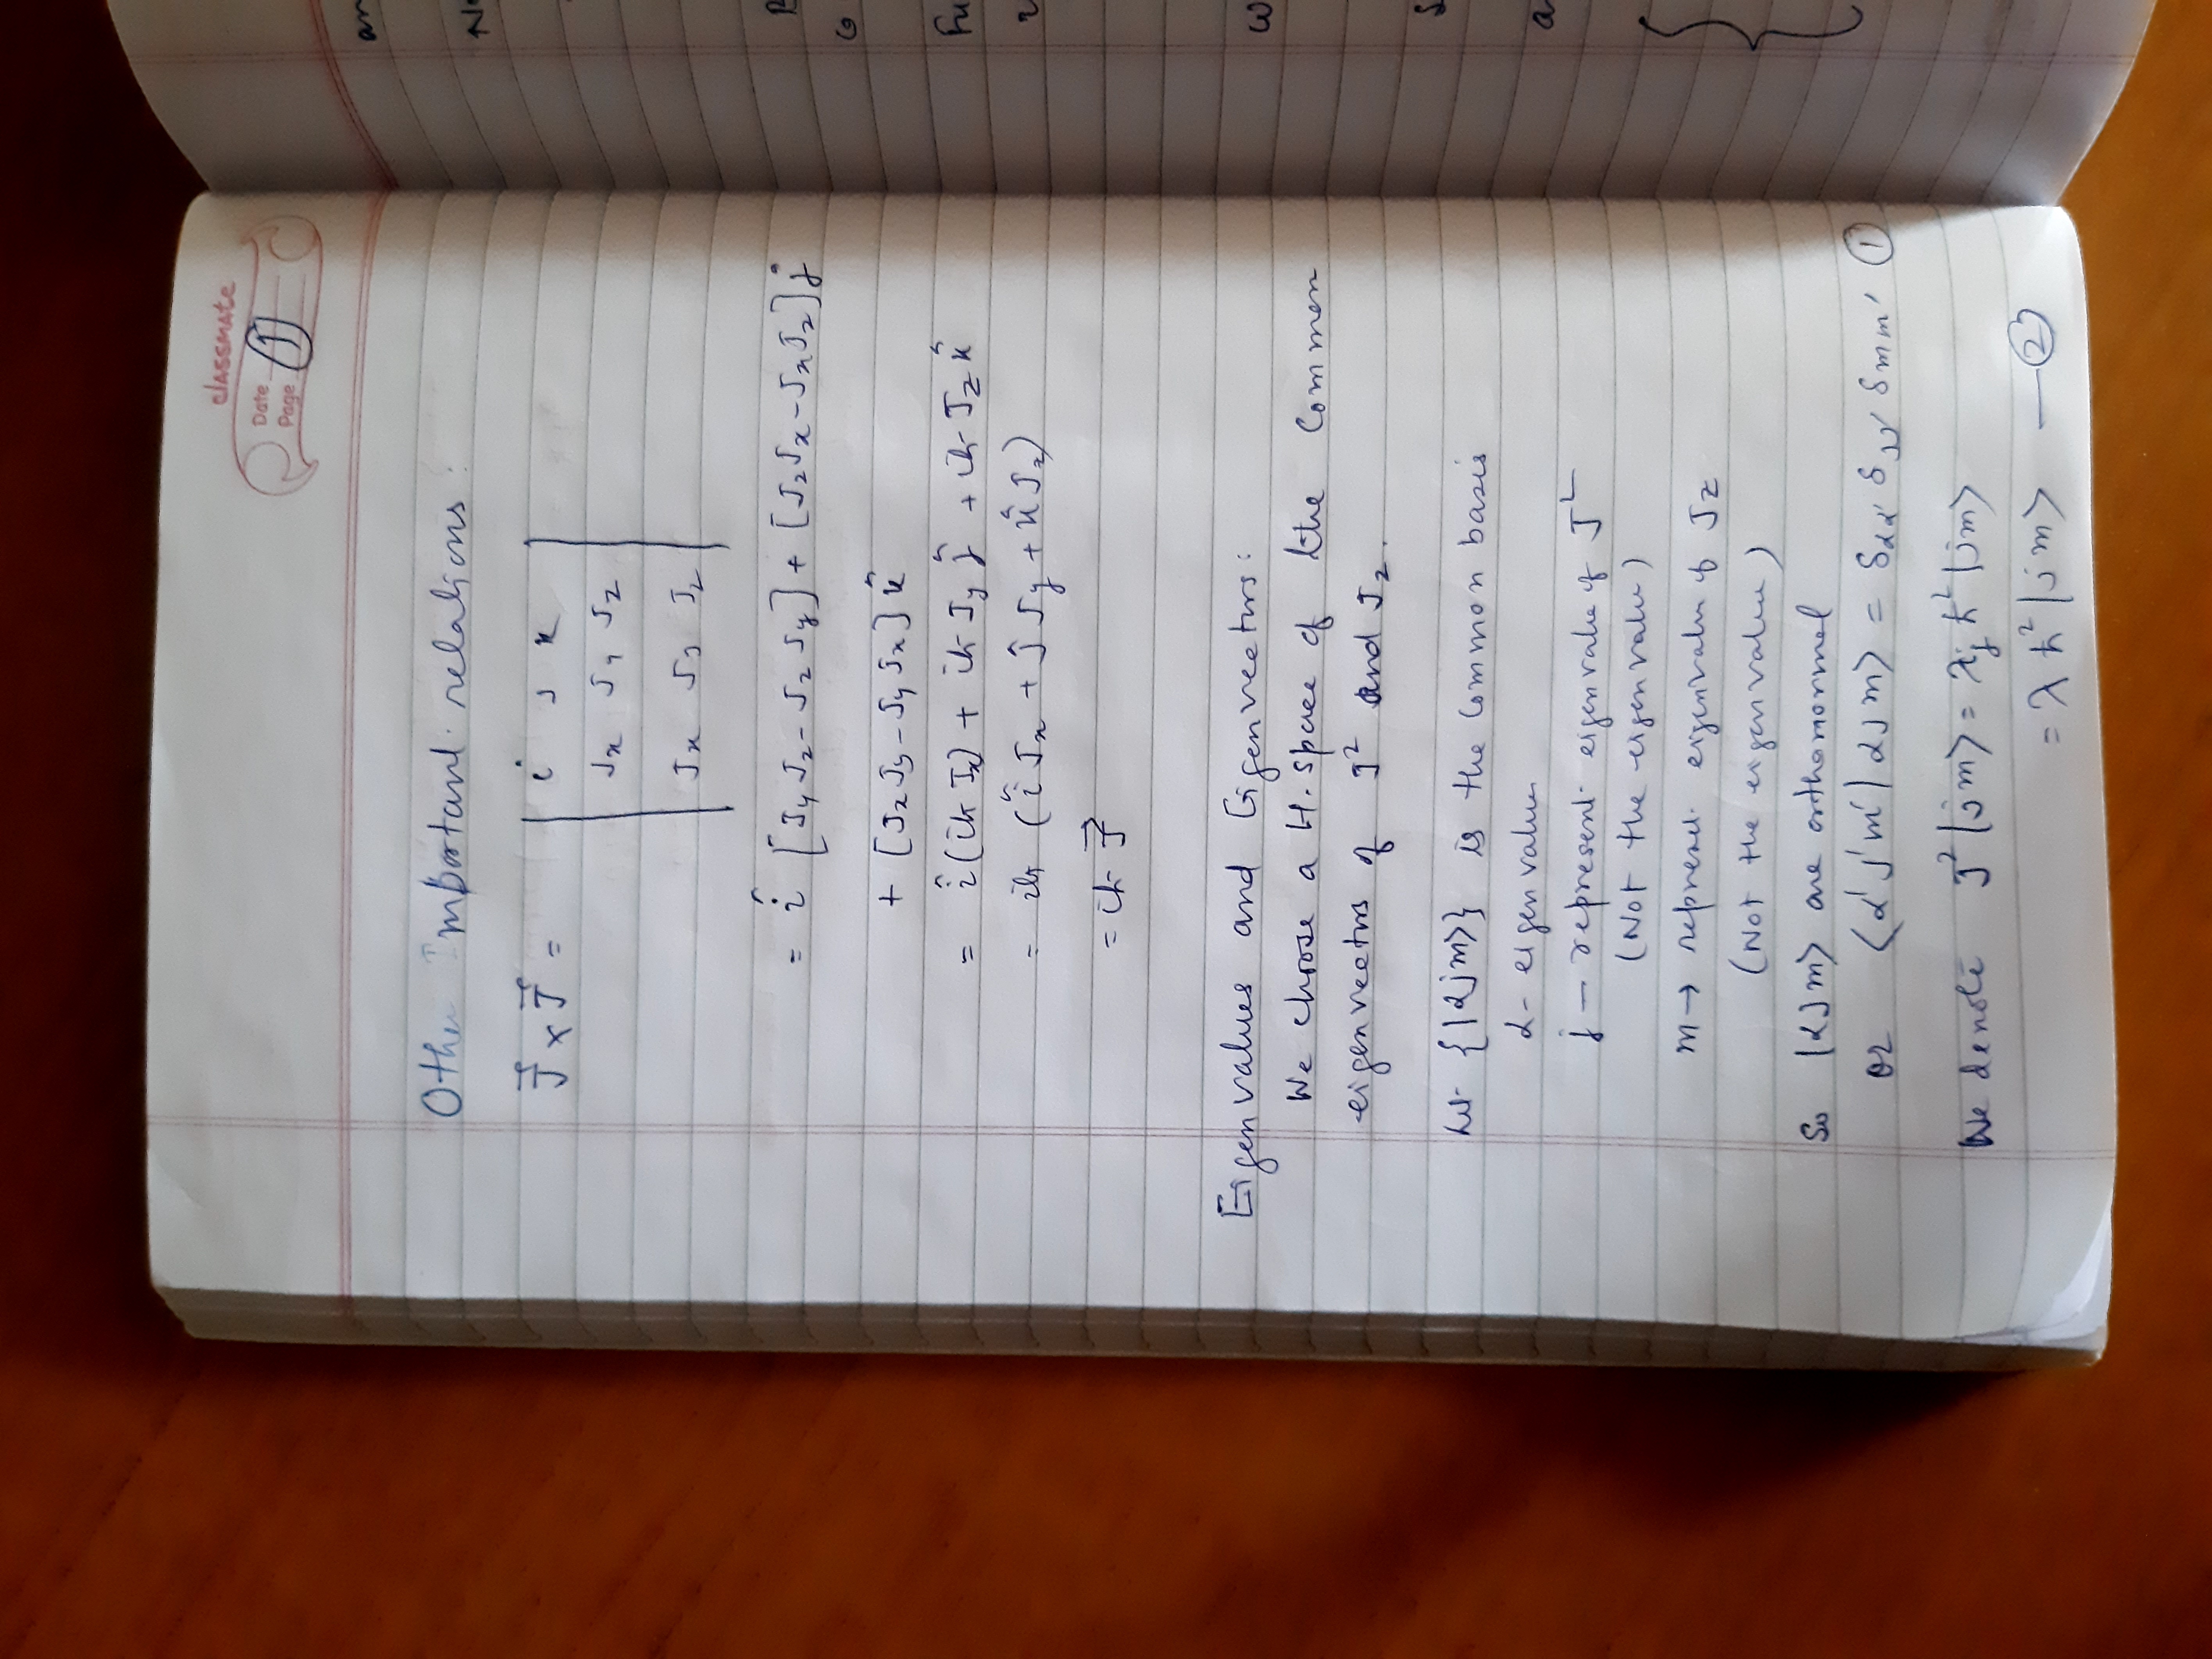 classmate
Date
Page 1
Other Important relations:
J⃗ × J⃗ = | i J k |
| Jx Jy Jz |
| Jx Jy Jz |
= î [JyJz - JzJy] + [JzJx - JxJz] ĵ
+ [JxJy - JyJx] k̂
= î (iħ Jx) + iħ Jy ĵ + iħ Jz k̂
= iħ (î Jx + ĵ Jy + k̂ Jz)
= iħ J⃗
Eigen values and Eigenvectors:
We choose a H. space of the Common
eigenvectors of J² and Jz.
Let {|αjm⟩} is the Common basis
α - eigen value
j — represent eigen value of J²
(Not the eigen value)
m → represent eigenvalue of Jz
(Not the eigen value)
So |αjm⟩ are orthonormal
or ⟨α'j'm'|αjm⟩ = δαα' δjj' δmm' ①
We denote J²|jm⟩ = λj ħ²|jm⟩
= λ ħ²|jm⟩ — ②
an